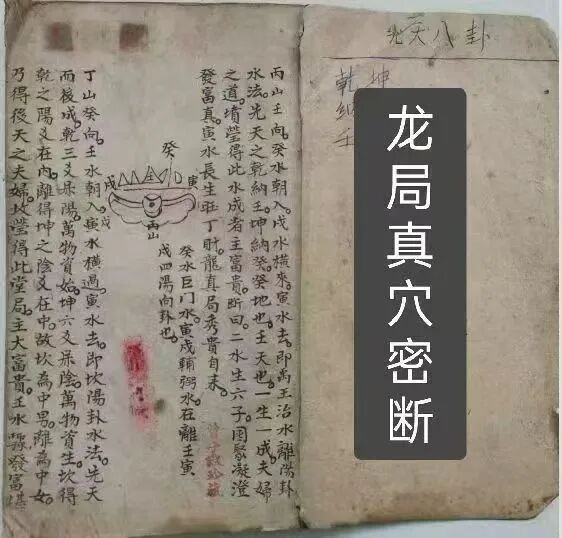 先天八卦
乾坤
納
壬
龙局真穴密断
丙山壬向。癸水朝入。戌水橫來。寅水去。即禹王治水離陽卦
水法。先天之乾納壬。坤納癸。癸地也。壬天也。一生一成。夫婦
之道。墳塋得此水成者。主富貴。斷曰。二水生六子。團聚凝澄
發富真。寅水長生旺丁財。龍真局秀貴自来。
癸
寅
戌
丙山
癸水巨門水寅戌輔弼水石離壬寅
戌四陽向卦也。
丁山癸向。壬水朝入。寅水橫過。寅水去。即坎陽卦水法。先天
而後成。乾三爻呆陽。萬物資始。坤六爻呆陰。萬物資生。坎得
乾之陽爻在内。離得坤之陰爻在中。故坎為中男。離為中女。
乃得後天之夫婦。故塋得此堂局。主大富貴。壬水驟發富甚